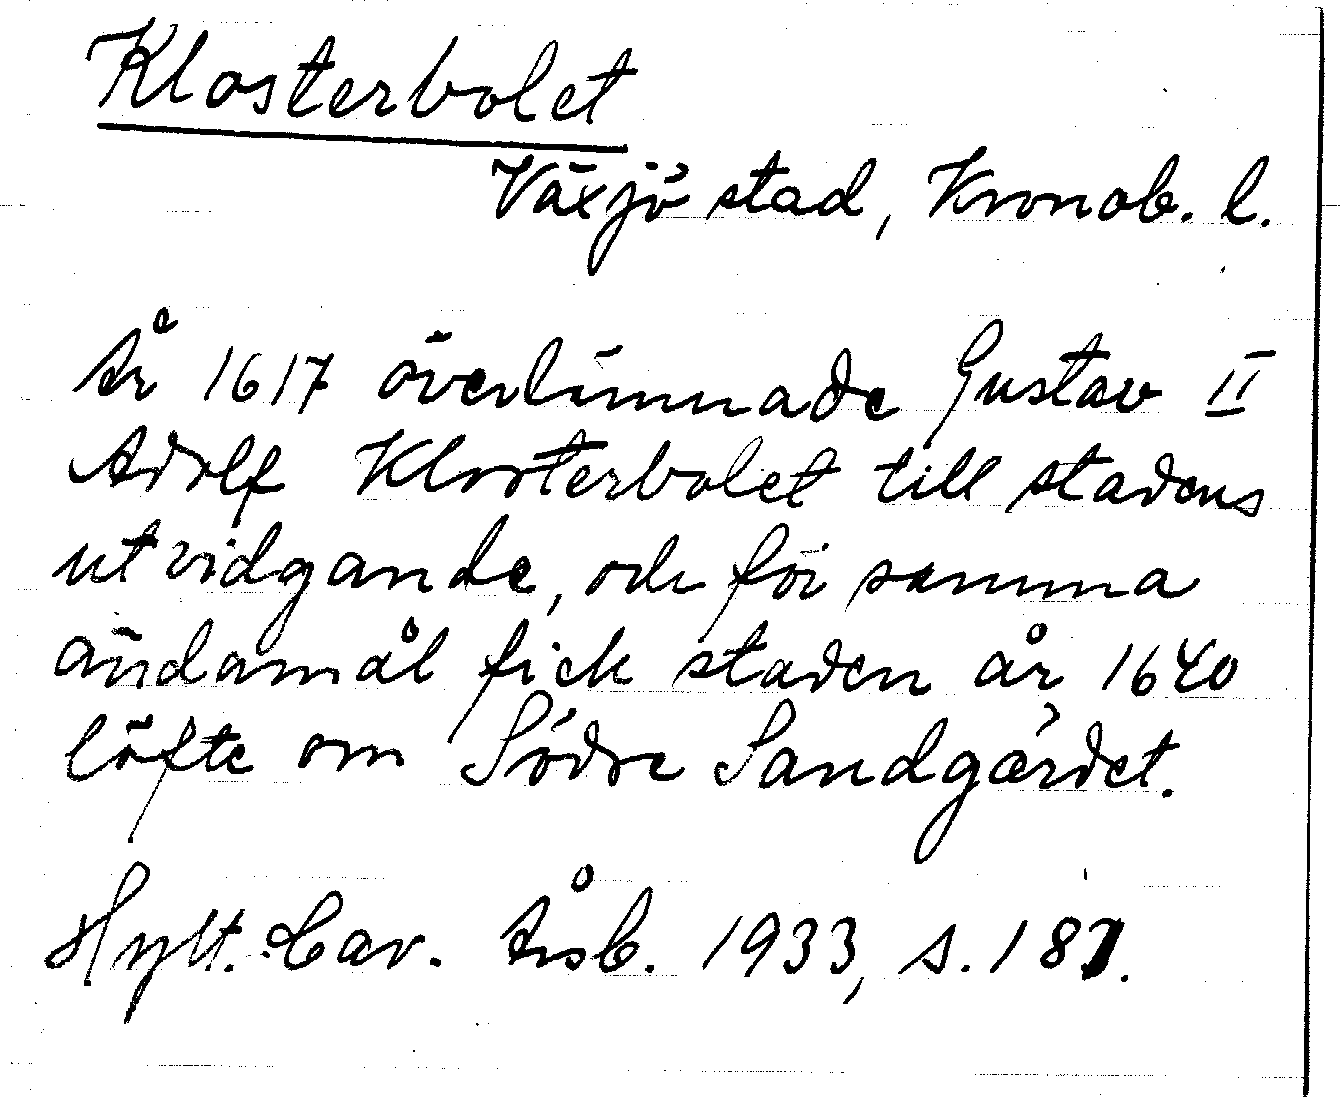 Klosterbolet
Växjö stad, Kronob. l.
År 1617 överlämnade Gustav II
Adolf Klosterbolet till stadens
utvidgande, och för samma
ändamål fick staden år 1640
löfte om Södra Sandgärdet.
Hylt.-Cav. Årsb. 1933, s.